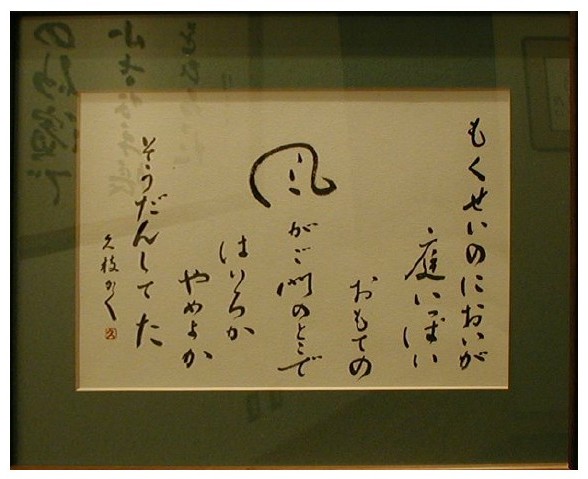 もくせいのにおいが
庭いっぱい
おもての
風がご門のとこで
はいろか
やめよか
そうだんしてた
久枝かく